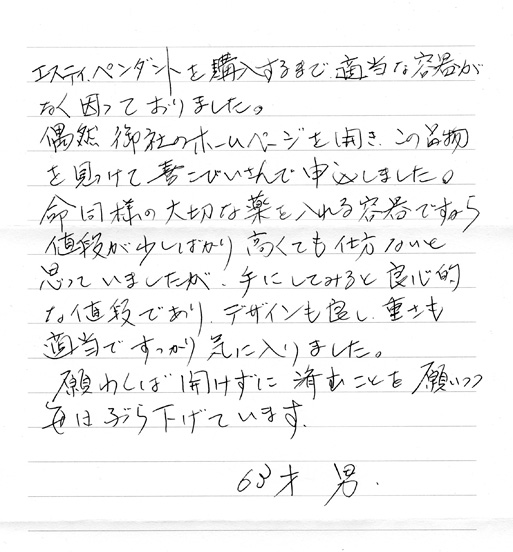 エスティ.ペンダントを購入するまで適当な容器が
なく困っておりました。
偶然 御社のホームページを開き、この品物
を見つけて喜こびいさんで申込しました。
命同様の大切な薬を入れる容器ですから
値段が少しばかり高くても仕方ないと
思っていましたが、手にしてみると良心的
な値段であり、デザインも良し、重さも
適当ですっかり気に入りました。
願わくば開けずに済むことを願いつつ
毎日ぶら下げています。
男.